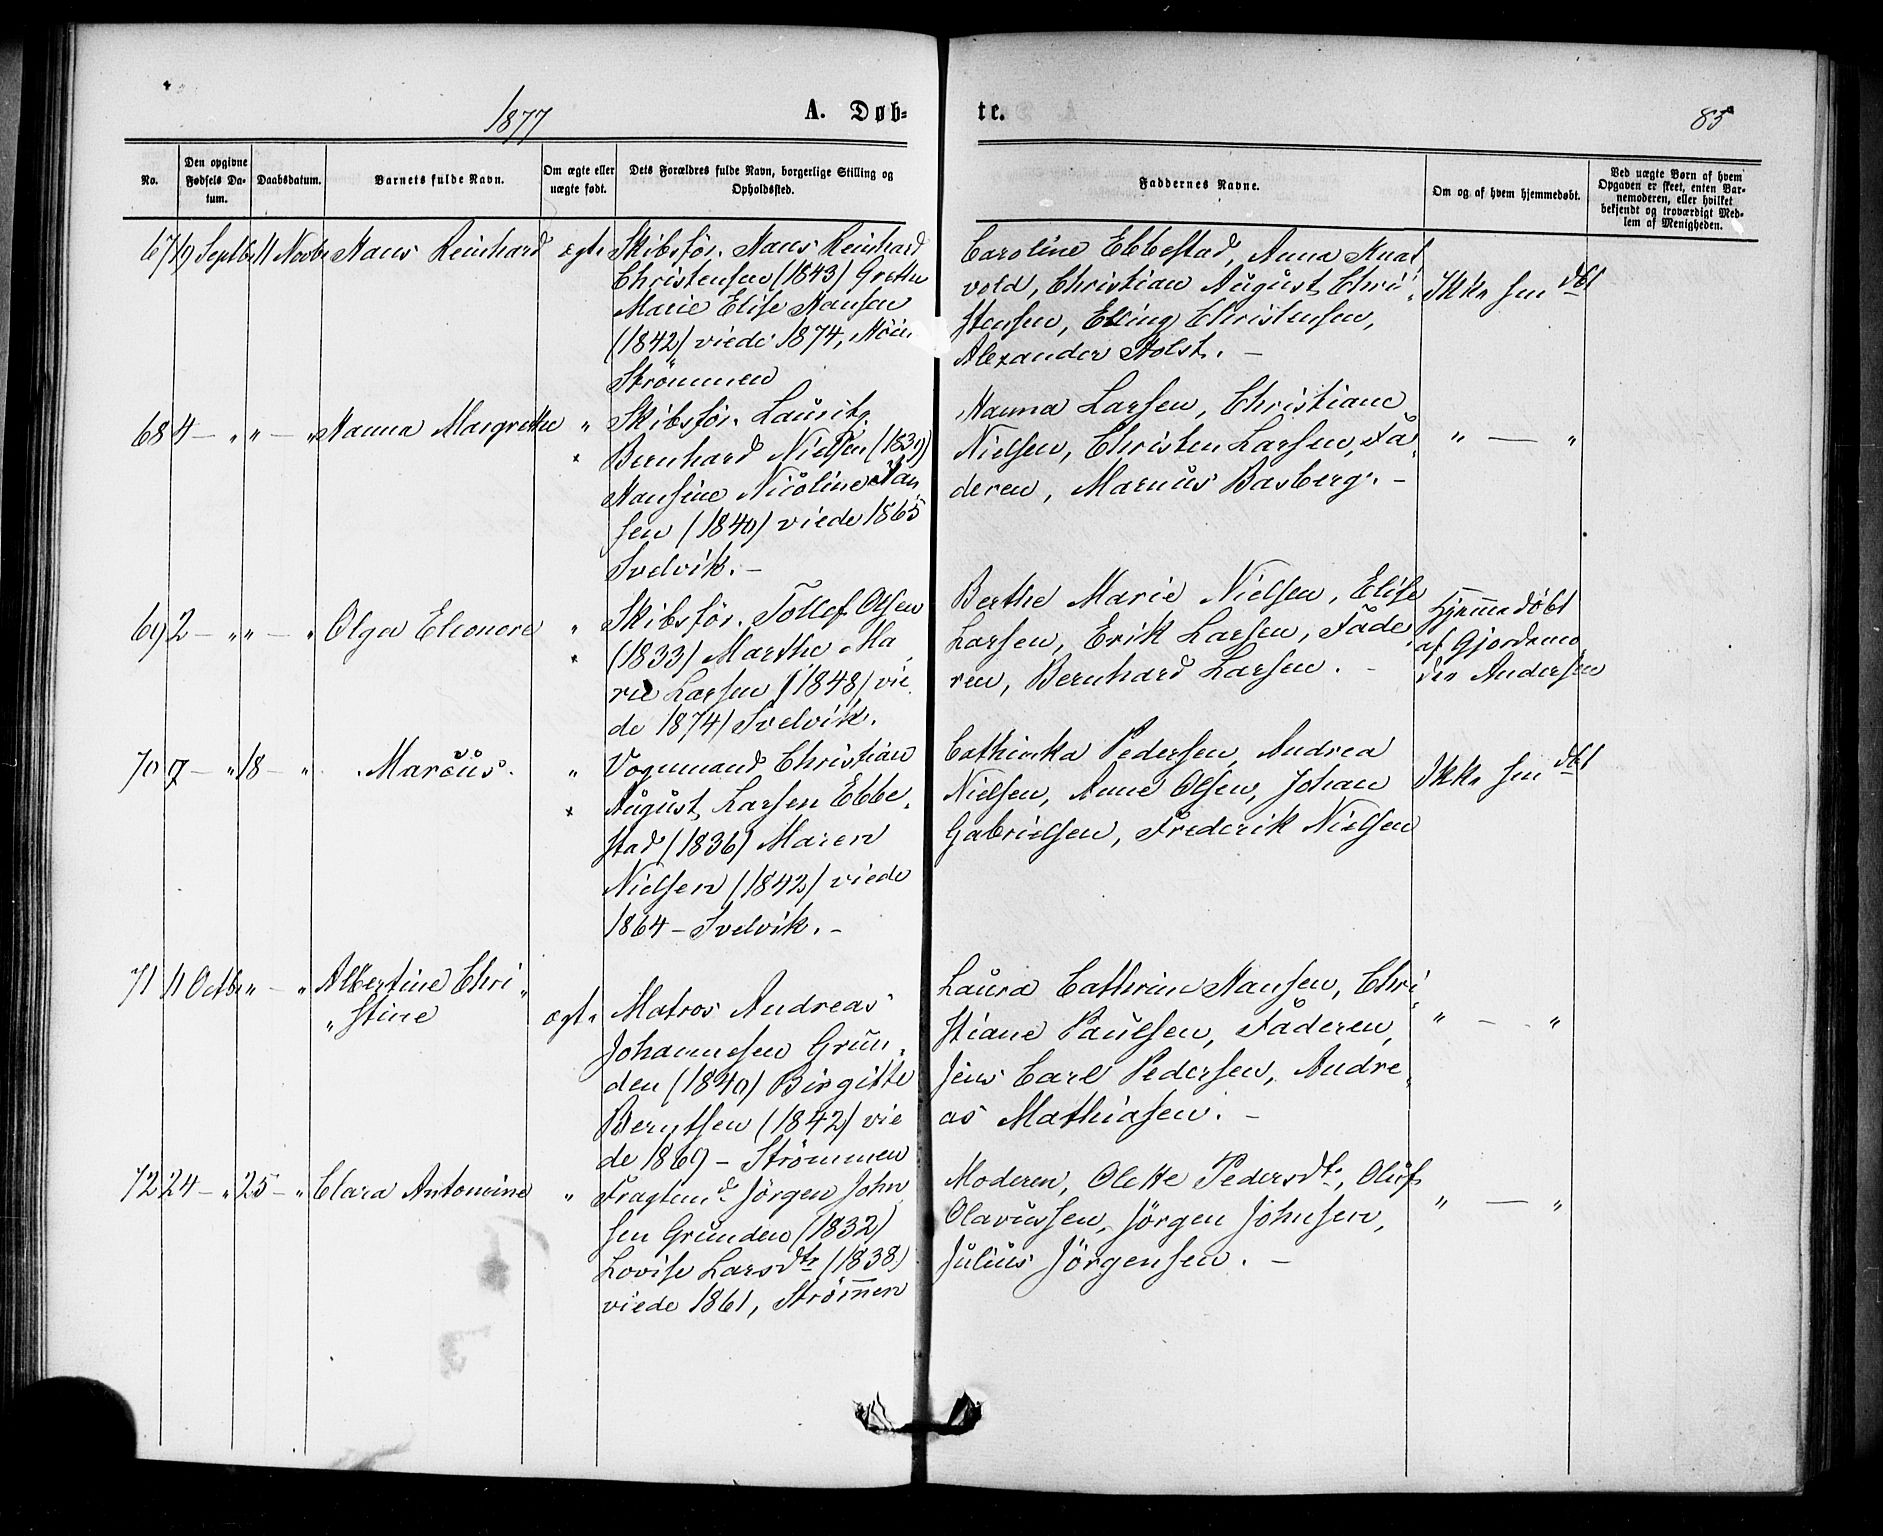 1877
A. Døb-
te.
85
No.
Den opgivne Fødsels Da-tum.
Daabsdatum.
Barnets fulde Navn.
Om ægte eller uægte født.
Dets Forældres fulde Navn, borgerlige Stilling og Opholdssted.
Faddernes Navne.
Om og af hvem hjemmedøbt.
Ved uægte Børn af hvem Opgaven er skeet, enten Bar-nemoderen, eller hvilket bekjendt og troværdigt Med-lem af Menigheden.
67 19 Septbr 11 Novbr Hans Reinhard ægte Skibsfør. Hans Reinhard
Christensen (1843) Grethe
Marie Elise Hansen
(1842) viede 1874,
Strømmen
Caroline Ebbestad, Anna Knat
vold, Christian August Chri-
stensen, Elling Christensen,
Alexander Holst. –
Ikke hjmdbt
68 4 – " " – " Hanna Margrethe " Skibsfør. Lauritz
Bernhard Nielsen (1839)
Hansine Nicoline Han
sen (1840) viede 1865
Svelvik. –
Hanna Larsen, Christiane
Nielsen, Christen Larsen, Fa-
deren, Marius Basberg. –
" — "
69 2 – " " – " Olga Eleonore " Skibsfør. Tollef Olsen
(1833) Marthe Ma
rie Larsen (1848) vie
de 1874) Svelvik.
Berthe Marie Nielsen, Elise
Larsen, Erik Larsen, Fade-
ren, Bernhard Larsen. –
Hjemmedøbt
af Gjordemo
der Andersen
70 7 – " 18 – " Marcus. " Vognmand Christian
August Larsen Ebbe-
stad (1836) Maren
Nielsen (1842) viede
1864 – Svelvik. –
Cathinka Pedersen, Andrea
Nielsen, Anne Olsen, Johan
Gabrielsen, Frederik Nielsen
Ikke hjmdbt
71 11 Octbr " – " Albertine Chri "
" stine ægte Matros Andreas
Johannesen Grun-
den (1840) Birgitte
Berntsen (1842) vie
de 1869 – Strømmen
Laura Cathrine Hansen, Chri
stiane Paulsen, Faderen,
Jens Carl Pedersen, Andre-
as Mathiasen. –
" – "
72 24 – " 25 – " Clara Antonine " Fragtemd. Jörgen John
sen Grunden (1832)
Lovise Larsdtr (1838)
viede 1861, Strömmen
Moderen, Olette Pedersdt., Oluf
Olavussen, Jörgen Johnsen,
Julius Jörgensen. –
" — "